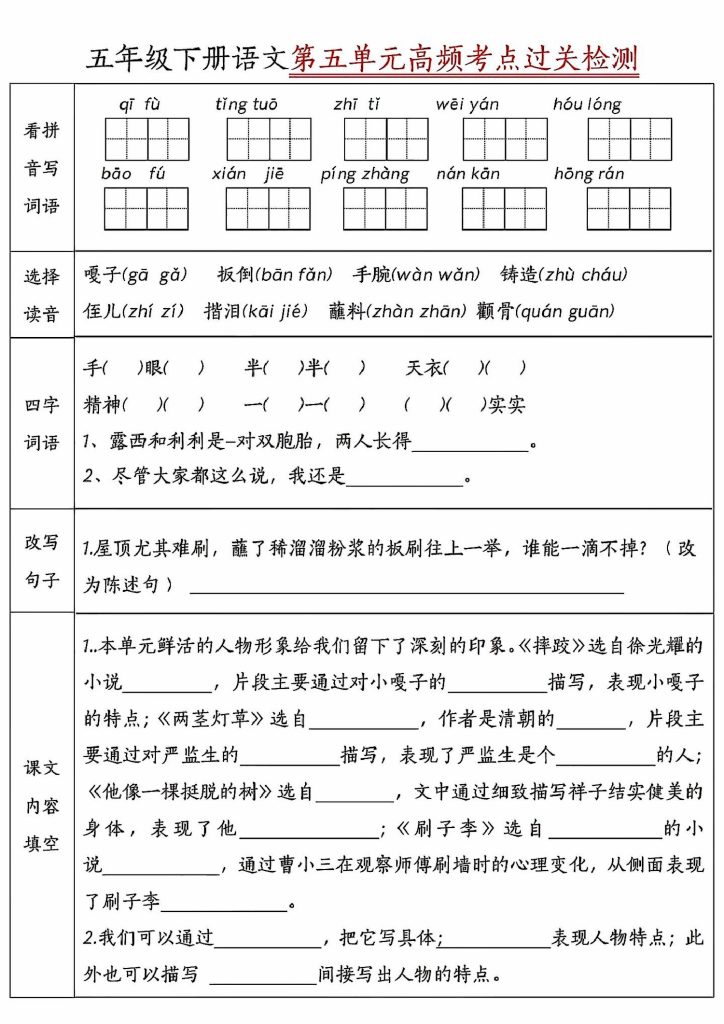 五年级下册语文第五单元高频考点过关检测
看拼音写词语
qī fù tǐng tuō zhī tǐ wēi yán hóu lóng
bāo fú xián jiē píng zhàng nán kān hōng rán
选择读音
嘎子(gā gǎ) 扳倒(bān fǎn) 手腕(wàn wǎn) 铸造(zhù cháu)
侄儿(zhí zí) 揩泪(kāi jié) 蘸料(zhàn zhān) 颧骨(quán guān)
四字词语
手( )眼( ) 半( )半( ) 天衣( )( )
精神( )( ) 一( )一( ) ( )( )实实
1、露西和利利是一对双胞胎，两人长得____________。
2、尽管大家都这么说，我还是____________。
改写句子
1.屋顶尤其难刷，蘸了稀溜溜粉浆的板刷往上一举，谁能一滴不掉？（改
为陈述句）____________
课文内容填空
1..本单元鲜活的人物形象给我们留下了深刻的印象。《摔跤》选自徐光耀的
小说_________，片段主要通过对小嘎子的__________描写，表现小嘎子
的特点；《两茎灯草》选自___________，作者是清朝的_______，片段主
要通过对严监生的__________描写，表现了严监生是个__________的人；
《他像一棵挺脱的树》选自________，文中通过细致描写祥子结实健美的
身体，表现了他______________；《刷子李》选自___________的小
说____________，通过曹小三在观察师傅刷墙时的心理变化，从侧面表现
了刷子李____________。
2.我们可以通过___________，把它写具体；___________表现人物特点；此
外也可以描写 ___________间接写出人物的特点。